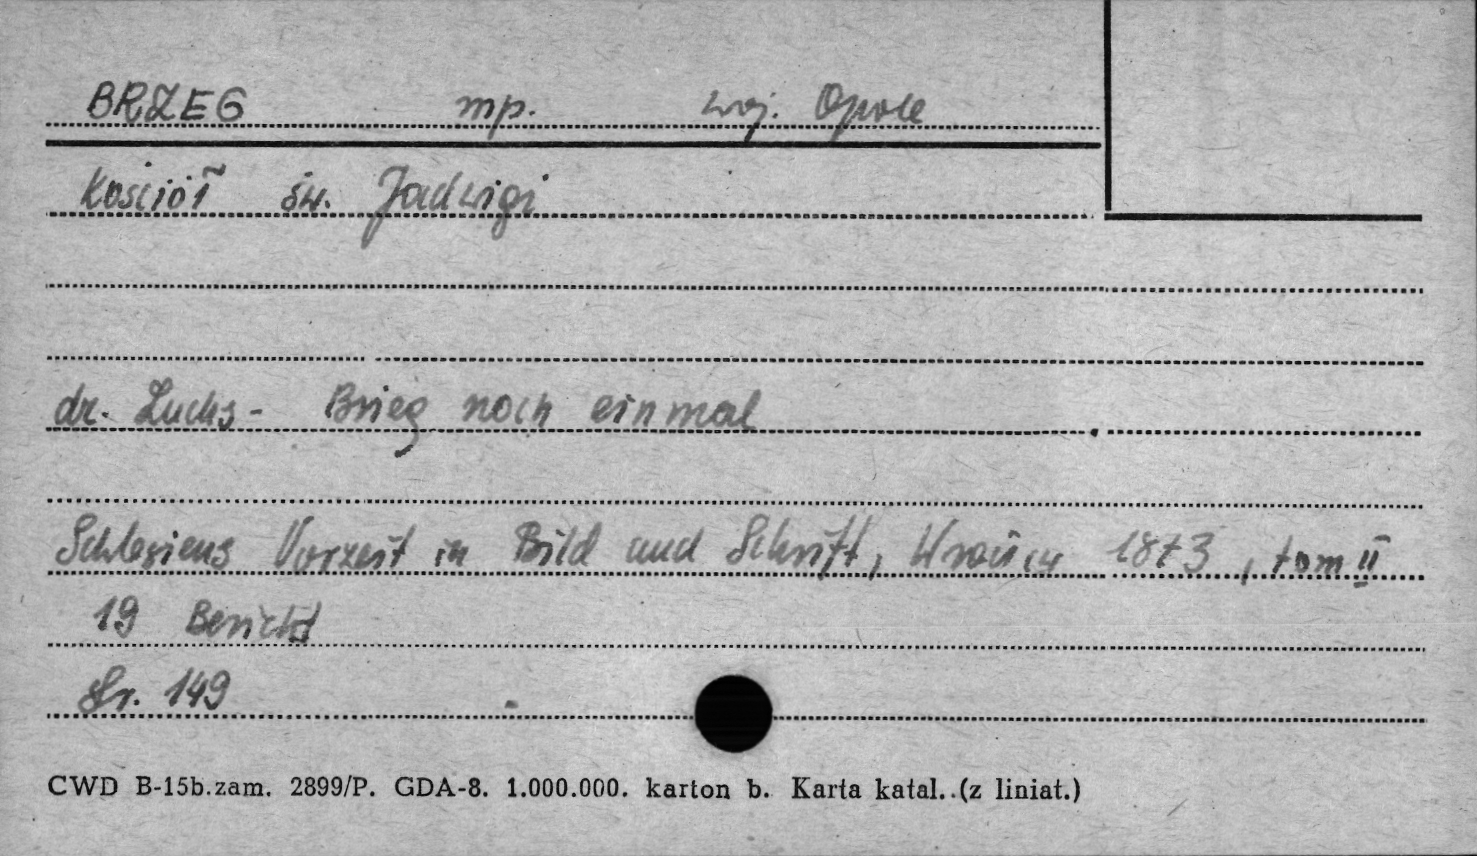 BRZEG mp. woj. Opole
Kościół św. Jadwigi
dr. Luchs - Brieg noch einmal
Schlesiens Vorzeit in Bild und Schrift, Wrocław 1873, tom II
19 Bericht
Str. 149
CWD B-15b.zam. 2899/P. GDA-8. 1.000.000. karton b. Karta katal. (z liniat.)